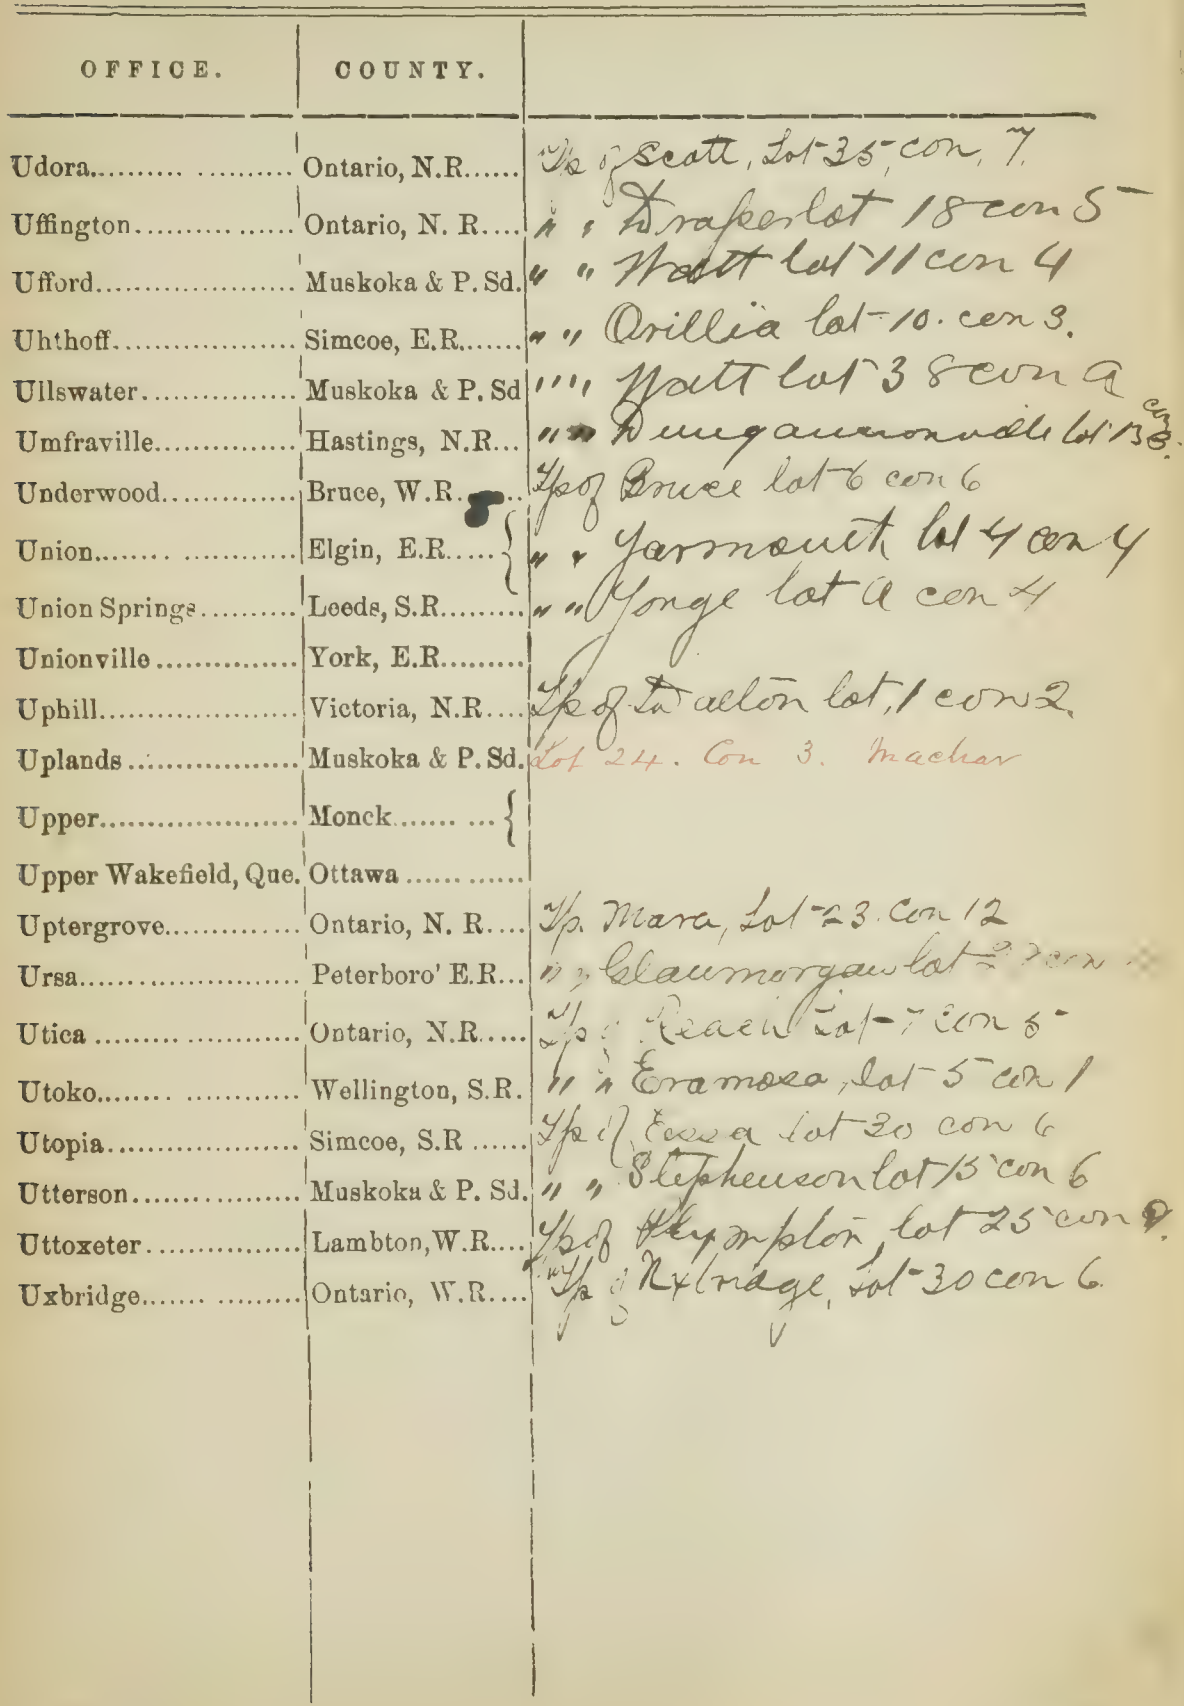 OFFICE. COUNTY.
Udora.......... .......... Ontario, N.R...... Tp of Scott, Lot 35, con, 7.
Uffington................ Ontario, N. R.... " " Draper lot 18 con 5
Ufford.................... Muskoka & P. Sd. " " Watt lot 11 con 4
Uhthoff.................. Simcoe, E.R....... " " Orillia lot 10. con 3.
Ullswater................ Muskoka & P. Sd " " Watt lot 38 con A
Umfraville............... Hastings, N.R... " " Dungannonville lot 13 con
Underwood.............. Bruce, W.R...... Tp of Bruce lot 6 con 6
Union........ .......... Elgin, E.R..... { " " Yarmouth lot 4 con 4
Union Springs.......... Leeds, S.R......... " " Yonge lot A con 4
Unionville ............... York, E.R.........
Uphill.................... Victoria, N.R.... Tp of Dalton lot, 1 con 2.
Uplands .................. Muskoka & P. Sd. Lot 24. Con 3. Machar
Upper..................... Monck....... ... {
Upper Wakefield, Que. Ottawa ...... ......
Uptergrove.............. Ontario, N. R.... Tp. Mara, Lot 23. Con 12
Ursa....................... Peterboro' E.R... " " Glaumorgan lot con
Utica ..................... Ontario, N.R..... Tp Reach Lot 7 con 5
Utoko........ ............ Wellington, S.R. " " Eramosa, lot 5 con 1
Utopia.................... Simcoe, S.R ...... Tp of Essa lot 30 con 6
Utterson.................. Muskoka & P. Sd. " " Stephenson lot 15 con 6
Uttoxeter ................ Lambton, W.R.... Tp of Plympton, lot 25 con
Uxbridge....... ......... Ontario, W.R.... Tp of Uxbridge, Lot 30 con 6.